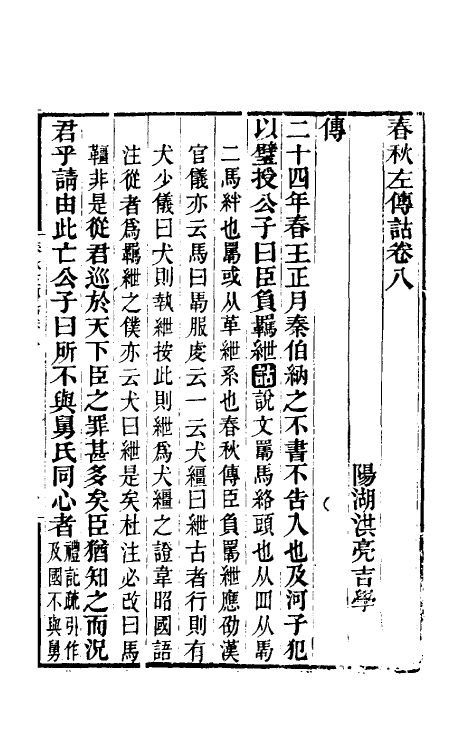 春秋左傳詁卷八
陽湖洪亮吉學
傳
二十四年春王正月秦伯納之不書不告入也及河子犯
以璧授公子曰臣負羈絏詁說文羈馬絡頭也从罒从馬
二馬絆也羈或从革絏系也春秋傳臣負羈絏應劭漢
官儀亦云馬曰羈服虔云一云犬繮曰絏古者行則有
犬少儀曰犬則執絏按此則絏爲犬繮之證韋昭國語
注從者爲羈絏之僕亦云犬曰絏是矣杜注必改曰馬
繮非是從君巡於天下臣之罪甚多矣臣猶知之而況
君乎請由此亡公子曰所不與舅氏同心者禮記疏引作
及國不與舅